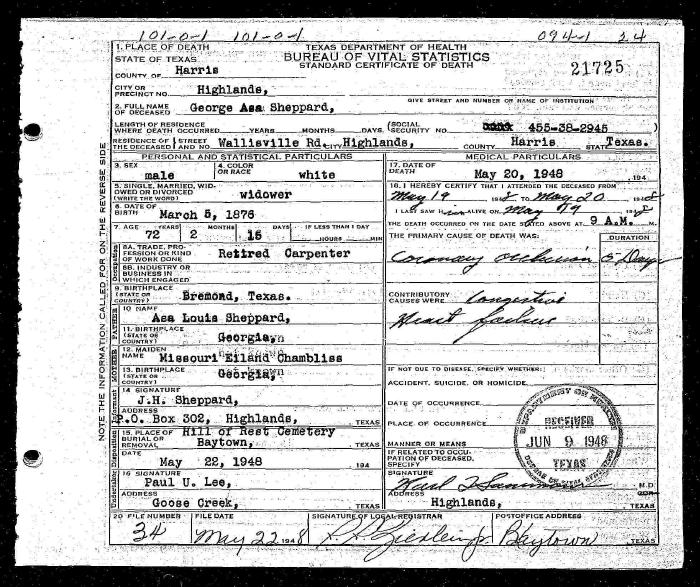 101-0-1 101-0-1 094-1 24
1. PLACE OF DEATH
STATE OF TEXAS
TEXAS DEPARTMENT OF HEALTH
BUREAU OF VITAL STATISTICS
STANDARD CERTIFICATE OF DEATH
21725
COUNTY OF Harris
CITY OR PRECINCT NO. Highlands,
GIVE STREET AND NUMBER OR NAME OF INSTITUTION
2. FULL NAME OF DECEASED George Asa Sheppard,
LENGTH OF RESIDENCE WHERE DEATH OCCURRED YEARS MONTHS DAYS
(SOCIAL SECURITY NO. 455-38-2945 )
RESIDENCE OF THE DECEASED STREET AND NO. Wallisville Rd. CITY Highlands, COUNTY Harris STATE Texas.
PERSONAL AND STATISTICAL PARTICULARS
3. SEX male
4. COLOR OR RACE white
5. SINGLE, MARRIED, WIDOWED OR DIVORCED (WRITE THE WORD) widower
6. DATE OF BIRTH March 5, 1876
7. AGE YEARS 72 MONTHS 2 DAYS 15 IF LESS THAN 1 DAY HOURS MIN
8A. TRADE, PROFESSION OR KIND OF WORK DONE Retired Carpenter
8B. INDUSTRY OR BUSINESS IN WHICH ENGAGED
9. BIRTHPLACE (STATE OR COUNTRY) Bremond, Texas.
10 NAME Asa Louis Sheppard,
11. BIRTHPLACE (STATE OR COUNTRY) Georgia,
12. MAIDEN NAME Missouri Eiland Chambliss
13. BIRTHPLACE (STATE OR COUNTRY) Georgia,
14 SIGNATURE J.H. Sheppard,
ADDRESS P.O. Box 302, Highlands, TEXAS
15. PLACE OF BURIAL OR REMOVAL Hill of Rest Cemetery
Baytown, TEXAS
DATE May 22, 1948 194
16 SIGNATURE Paul U. Lee,
ADDRESS Goose Creek, TEXAS
MEDICAL PARTICULARS
17. DATE OF DEATH May 20, 1948 194
18. I HEREBY CERTIFY THAT I ATTENDED THE DECEASED FROM
May 19 1948 TO May 20 1948
I LAST SAW him ALIVE ON May 19 1948
THE DEATH OCCURRED ON THE DATE STATED ABOVE AT 9 A.M. M.
THE PRIMARY CAUSE OF DEATH WAS: DURATION
Coronary occlusion 5 Days
CONTRIBUTORY CAUSES WERE Congestive
Heart failure
IF NOT DUE TO DISEASE, SPECIFY WHETHER:
ACCIDENT, SUICIDE, OR HOMICIDE
DATE OF OCCURRENCE
PLACE OF OCCURRENCE
MANNER OR MEANS
IF RELATED TO OCCUPATION OF DECEASED, SPECIFY
RECEIVED
JUN 9 1948
TEXAS
SIGNATURE M.D.
ADDRESS Highlands, TEXAS
20 FILE NUMBER 34
FILE DATE May 22 1948
SIGNATURE OF LOCAL REGISTRAR
POSTOFFICE ADDRESS Baytown TEXAS
NOTE THE INFORMATION CALLED FOR ON THE REVERSE SIDE
Occupation
FATHER
MOTHER
Informant
Disposition
Undertaker